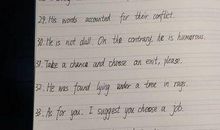 29. His words accounted for their conflict.
30. He is not dull. On the contrary, he is humorous.
31. Take a chance and choose an exit, please.
32. He was found lying under a tree in rags.
33. As for you, I suggest you choose a job.